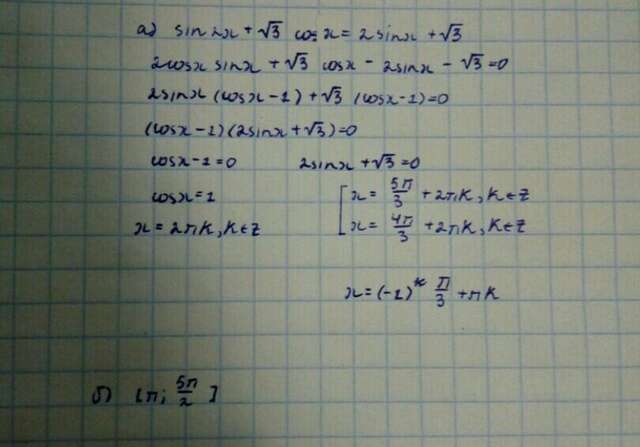 а) sin2x + √3 cosx = 2sinx + √3
2cosx sinx + √3 cosx - 2sinx - √3 = 0
2sinx (cosx - 1) + √3 (cosx - 1) = 0
(cosx - 1)(2sinx + √3) = 0
cosx - 1 = 0 2sinx + √3 = 0
cosx = 1 [ x = 5π/3 + 2πK, K∈Z
x = 2πK, K∈Z x = 4π/3 + 2πK, K∈Z
x = (-1)^K π/3 + πK
б) [π; 5π/2]